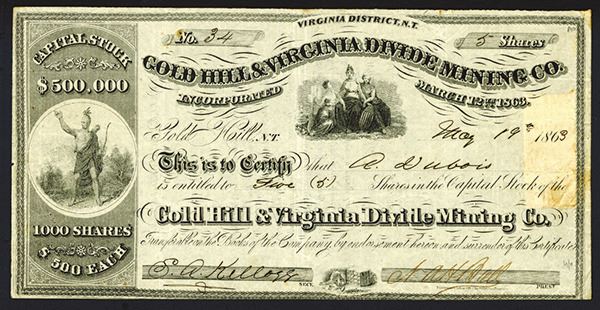 VIRGINIA DISTRICT, N.T.
No. 34
5 Shares
GOLD HILL & VIRGINIA DIVIDE MINING CO.
INCORPORATED MARCH 12TH 1863.
CAPITAL STOCK
$500,000
1000 SHARES
$500 EACH
Gold Hill, N.T. May 19th 1863
This is to Certify that A. Dubois
is entitled to Five (5) Shares in the Capital Stock of the
Gold Hill & Virginia Divide Mining Co.
Transferable on the Books of the Company, by endorsement hereon and surrender of this Certificate
E. A. Kellogg SECY. PREST.